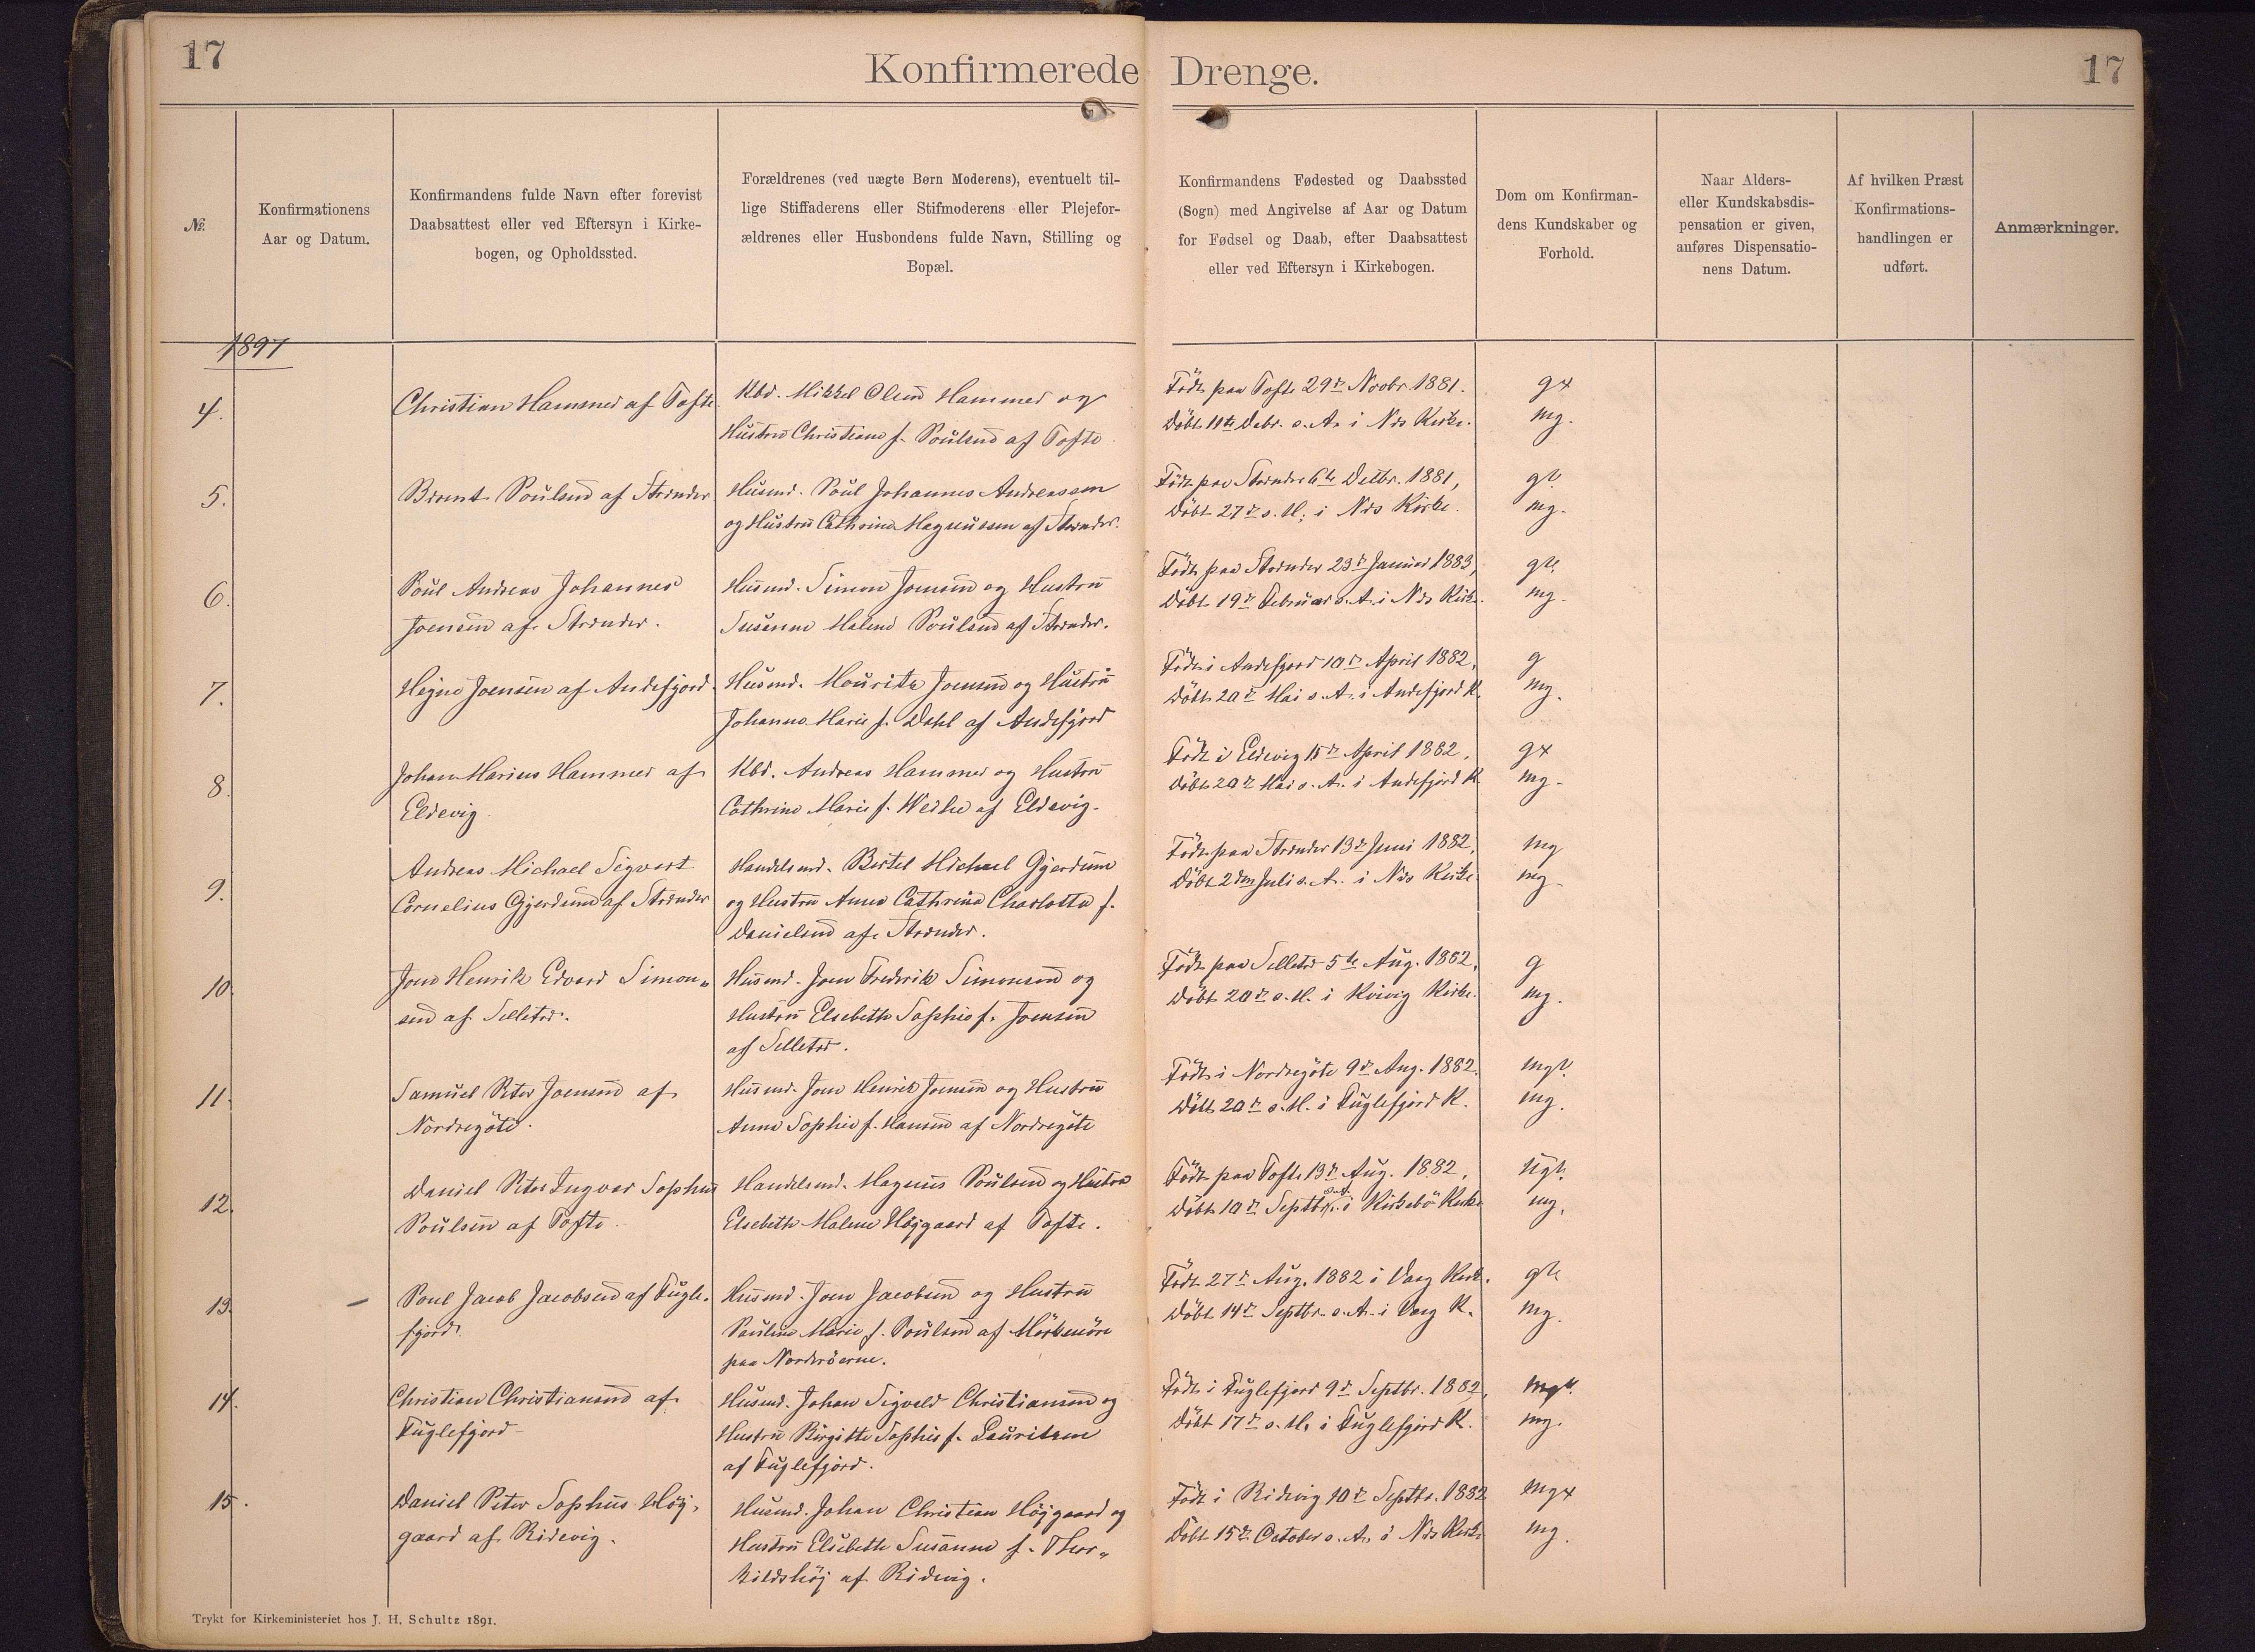 17
Konfirmerede Drenge.
17
№
Konfirmationens
Aar og Datum.
Konfirmandens fulde Navn efter forevist
Daabsattest eller ved Eftersyn i Kirke-
bogen, og Opholdssted.
Forældrenes (ved uægte Børn Moderens), eventuelt til-
lige Stiffaderens eller Stifmoderens eller Plejefor-
ældrenes eller Husbondens fulde Navn, Stilling og
Bopæl.
Konfirmandens Fødested og Daabssted
(Sogn) med Angivelse af Aar og Datum
for Fødsel og Daab, efter Daabsattest
eller ved Eftersyn i Kirkebogen.
Dom om Konfirman-
dens Kundskaber og
Forhold.
Naar Alders-
eller Kundskabsdis-
pensation er given,
anføres Dispensatio-
nens Datum.
Af hvilken Præst
Konfirmations-
handlingen er
udført.
Anmærkninger.
1897
4.
Christian Hammer af Tofte.
Kbd. Mikkel Olesen Hammer og
Hustru Christiane f. Poulsen af Tofte.
Født paa Tofte 29de Novbr. 1881.
Døbt 11te Decbr. s. A. i Næs Kirke.
g+
mg.
5.
Berent Poulsen af Strænder
Husmd. Poul Johannes Andreassen
og Hustru Cathrina Magnussen af Strænder.
Født paa Strænder 6te Decbr. 1881,
Døbt 27de s. M. i Næs Kirke.
g?
mg.
6.
Poul Andreas Johannes
Joensen af Strænder.
Husmd. Simon Joensen og Hustru
Susanne Malene Poulsen af Strænder.
Født paa Strænder 23de Januar 1883,
Døbt 19de Februar s. A. i Næs Kirke.
g?
mg.
7.
Hejne Joensen af Andefjord.
Husmd. Mouritz Joensen og Hustru
Johanne Marie f. Dahl af Andefjord
Født i Andefjord 10de April 1882,
Døbt 20de Mai s. A. i Andefjord K.
g
mg.
8.
Johan Marius Hammer af
Eldevig.
Kbd. Andreas Hammer og Hustru
Cathrine Marie f. Weihe af Eldevig.
Født i Eldevig 15de April 1882,
Døbt 20de Mai s. A. i Andefjord K.
g+
mg.
9.
Andreas Michael Sigvert
Cornelius Gjerdum af Strænder
Handelsmd. Bertel Michael Gjerdum
og Hustru Anna Cathrina Charlotta f.
Danielsen af Strænder.
Født paa Strænder 13de Juni 1882,
Døbt 2den Juli s. A. i Næs Kirke.
mg
mg.
10.
Joen Henrik Edvard Simon„
sen af Selletræ.
Husmd. Joen Frederik Simonsen og
Hustru Elsebeth Sophie f. Joensen
af Selletræ.
Født paa Selletræ 5te Aug. 1882,
Døbt 20de s. M. i Kvivig Kirke.
g
mg.
11.
Samuel Peter Joensen af
Nordregøte.
Husmd. Joen Henrik Joensen og Hustru
Anne Sophie f. Hansen af Nordregøte
Født i Nordregøte 9de Aug. 1882.
Døbt 20de s. M. i Fuglefjord K.
mg?
mg.
12.
Daniel Peter Ingvar Sophus
Poulsen af Tofte.
Handelsmd. Magnus Poulsen og Hustru
Elsebeth Malene Højgaard af Tofte.
Født paa Tofte 13de Aug. 1882,
Døbt 10de Septbr. s. A. i Kirkebø Kirke
mg?
mg.
13.
Poul Jacob Jacobsen af Fugle-
fjord.
Husmd. Joen Jacobsen og Hustru
Pauline Marie f. Poulsen af Mörkenöre
paa Norderöerne.
Født 27de Aug. 1882 i Vaag Kirk.
Døbt 14de Septbr. s. A. i Vaag K.
g?
mg.
14.
Christian Christiansen af
Fuglefjord
Husmd. Johan Sigvald Christiansen og
Hustru Birgitte Sophie f. Lauritsen
af Fuglefjord.
Født i Fuglefjord 9de Septbr. 1882,
Døbt 17de s. M. i Fuglefjord K.
mg?
mg.
15.
Daniel Peter Sophus Høj,
gaard af Ridevig.
Husmd. Johan Christian Højgaard og
Hustru Elsebeth Susanne f. Thor„
kildshøj af Ridevig.
Født i Ridevig 10de Septbr. 1882
Døbt 15de October s. A. i Næs Kirke
mg+
mg.
Trykt for Kirkeministeriet hos J. H. Schultz 1891.